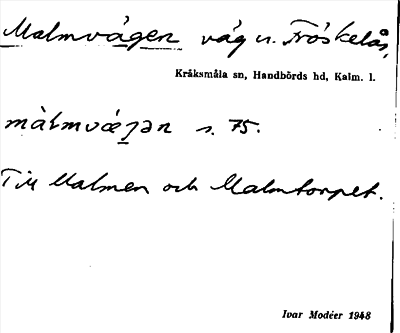 Malmvägen väg n. Fröskelås,
Kråksmåla sn, Handbörds hd, Kalm. l.
màlmvæ̱ʒən s. 75.
Till Malmen och Malmtorpet.
Ivar Modéer 1948